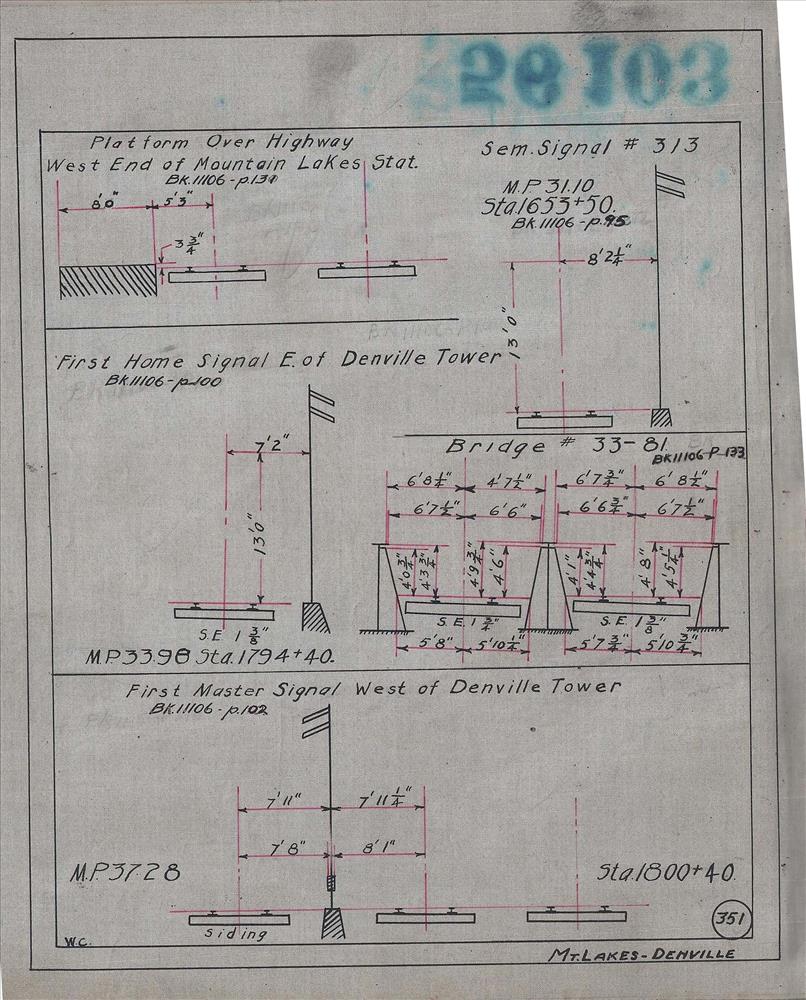 56103
Platform Over Highway
West End of Mountain Lakes Stat.
BK.11106-p.131
8'0" 5'3"
3 3/4"
Sem. Signal # 313
M.P 31.10
Sta.1653+50.
BK.11106-p.95
8'2 1/4"
13'0"
First Home Signal E. of Denville Tower
BK.11106-p.100
7'2"
13'0"
S.E 1 3/8"
M.P 33.98 Sta.1794+40.
Bridge # 33-81
BK11106-P-133
6'8 1/4" 4'7 1/2" 6'7 3/4" 6'8 1/2"
6'7 1/2" 6'6" 6'6 3/4" 6'7 1/2"
4'0 3/4" 4'3 3/4" 4'9 3/4" 4'6" 4'1" 4'4 3/4" 4'8" 4'5 1/4"
S.E. 1 3/4" S.E. 1 3/8"
5'8" 5'10 1/4" 5'7 3/4" 5'10 3/4"
First Master Signal West of Denville Tower
BK.11106-p.102
7'11" 7'11 1/4"
7'8" 8'1"
M.P 37.28 Sta.1800+40.
Siding
351
W.C.
MT. LAKES-DENVILLE